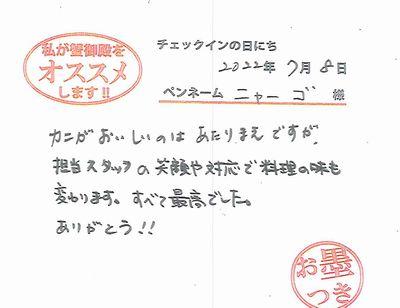 私が蟹御殿を
オススメ
します!!
チェックインの日にち
2022年 7月 8日
ペンネーム ニャーゴ 様
カニがおいしいのは あたりまえですが、
担当スタッフの 笑顔や対応で料理の味も
変わります。すべて最高でした。
ありがとう!!
お墨
つき